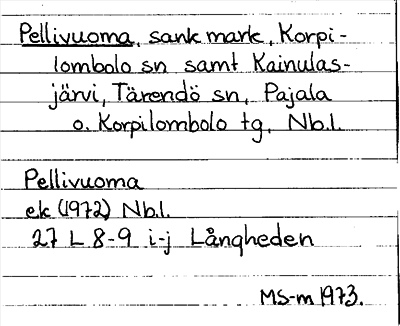 Pellivuoma, sank mark, Korpi-
lombolo sn samt Kainulas-
järvi, Tärendö sn, Pajala
o. Korpilombolo tg, Nb.l.
Pellivuoma
ek (1972) Nb.l.
27 L 8-9 i-j Långheden
MS-m 1973.